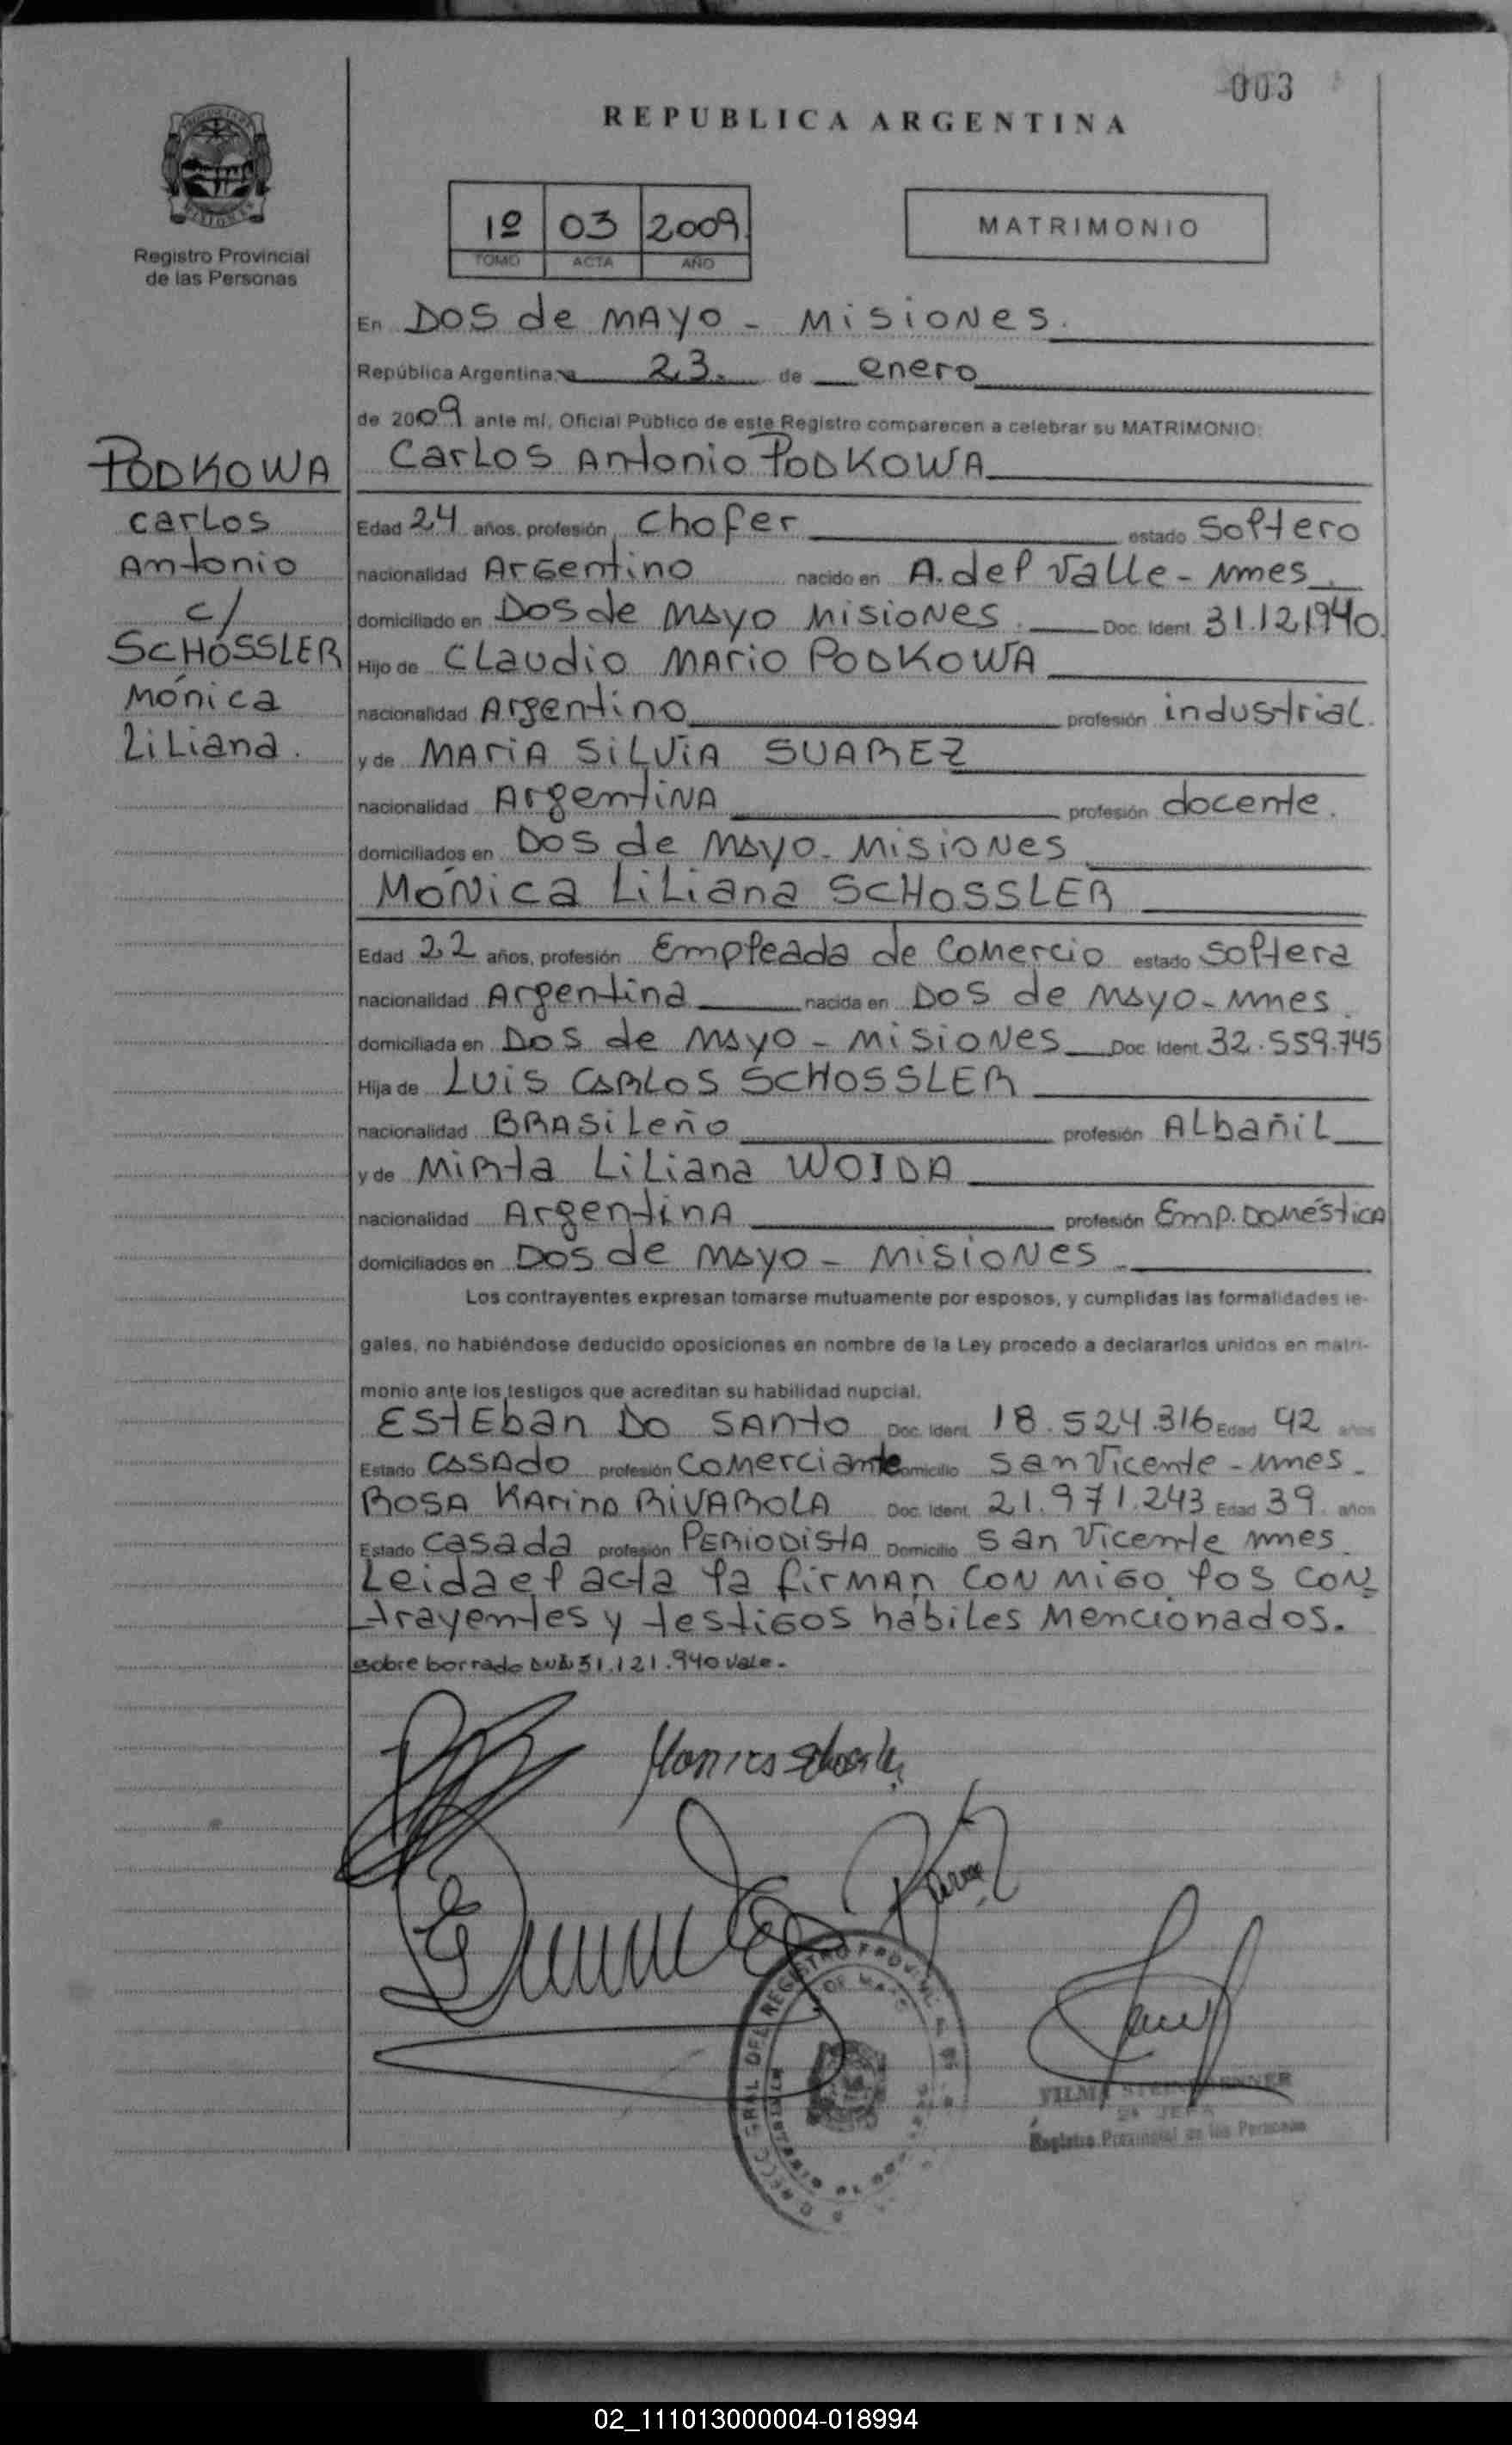 003
REPUBLICA ARGENTINA
Registro Provincial
de las Personas
1º 03 2009
TOMO ACTA AÑO
MATRIMONIO
En DOS de MAYO - MISIONES.
República Argentina, a 23. de enero
de 2009 ante mí, Oficial Público de este Registro comparecen a celebrar su MATRIMONIO:
Carlos Antonio PODKOWA
PODKOWA
Carlos
Antonio
c/
SCHÖSSLER
Mónica
Liliana.
Edad 24 años, profesión Chofer estado Soltero
nacionalidad Argentino nacido en A. del Valle - Mnes.
domiciliado en Dos de Mayo Misiones. Doc. Ident. 31.121940.
Hijo de Claudio Mario PODKOWA
nacionalidad Argentino profesión industrial.
y de MARIA SILVIA SUAREZ
nacionalidad Argentina profesión docente.
domiciliados en Dos de Mayo - Misiones
Mónica Liliana SCHOSSLER
Edad 22 años, profesión Empleada de Comercio estado Soltera
nacionalidad Argentina nacida en Dos de Mayo - Mnes.
domiciliada en Dos de Mayo - Misiones Doc. Ident. 32.559.745
Hija de LUIS CARLOS SCHOSSLER
nacionalidad BRASileño profesión Albañil
y de Mirta Liliana WOIDA
nacionalidad Argentina profesión Emp. Doméstica
domiciliados en Dos de Mayo - Misiones
Los contrayentes expresan tomarse mutuamente por esposos, y cumplidas las formalidades le-
gales, no habiéndose deducido oposiciones en nombre de la Ley procedo a declararlos unidos en matri-
monio ante los testigos que acreditan su habilidad nupcial.
Esteban DO SANTO Doc. Ident. 18.524.316 Edad 42 años
Estado CASADO profesión Comerciante Domicilio San Vicente - Mnes.
ROSA KARINA RIVAROLA Doc. Ident. 21.971.243 Edad 39. años
Estado Casada profesión PERIODISTA Domicilio San Vicente Mnes.
Leida el acta la firman conmigo los con-
trayentes y testigos hábiles mencionados.
sobre borrado DNI 31.121.940 Vale.-
VILMA
2ª JEFA
Registro Provincial de las Personas
02_111013000004-018994